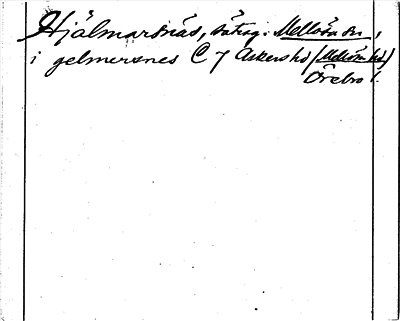 Hjälmarsnäs, sätesg. Mellösa sn,
i gelmersnes C 7 Askers hd (Mellösa hd)
Örebro l.